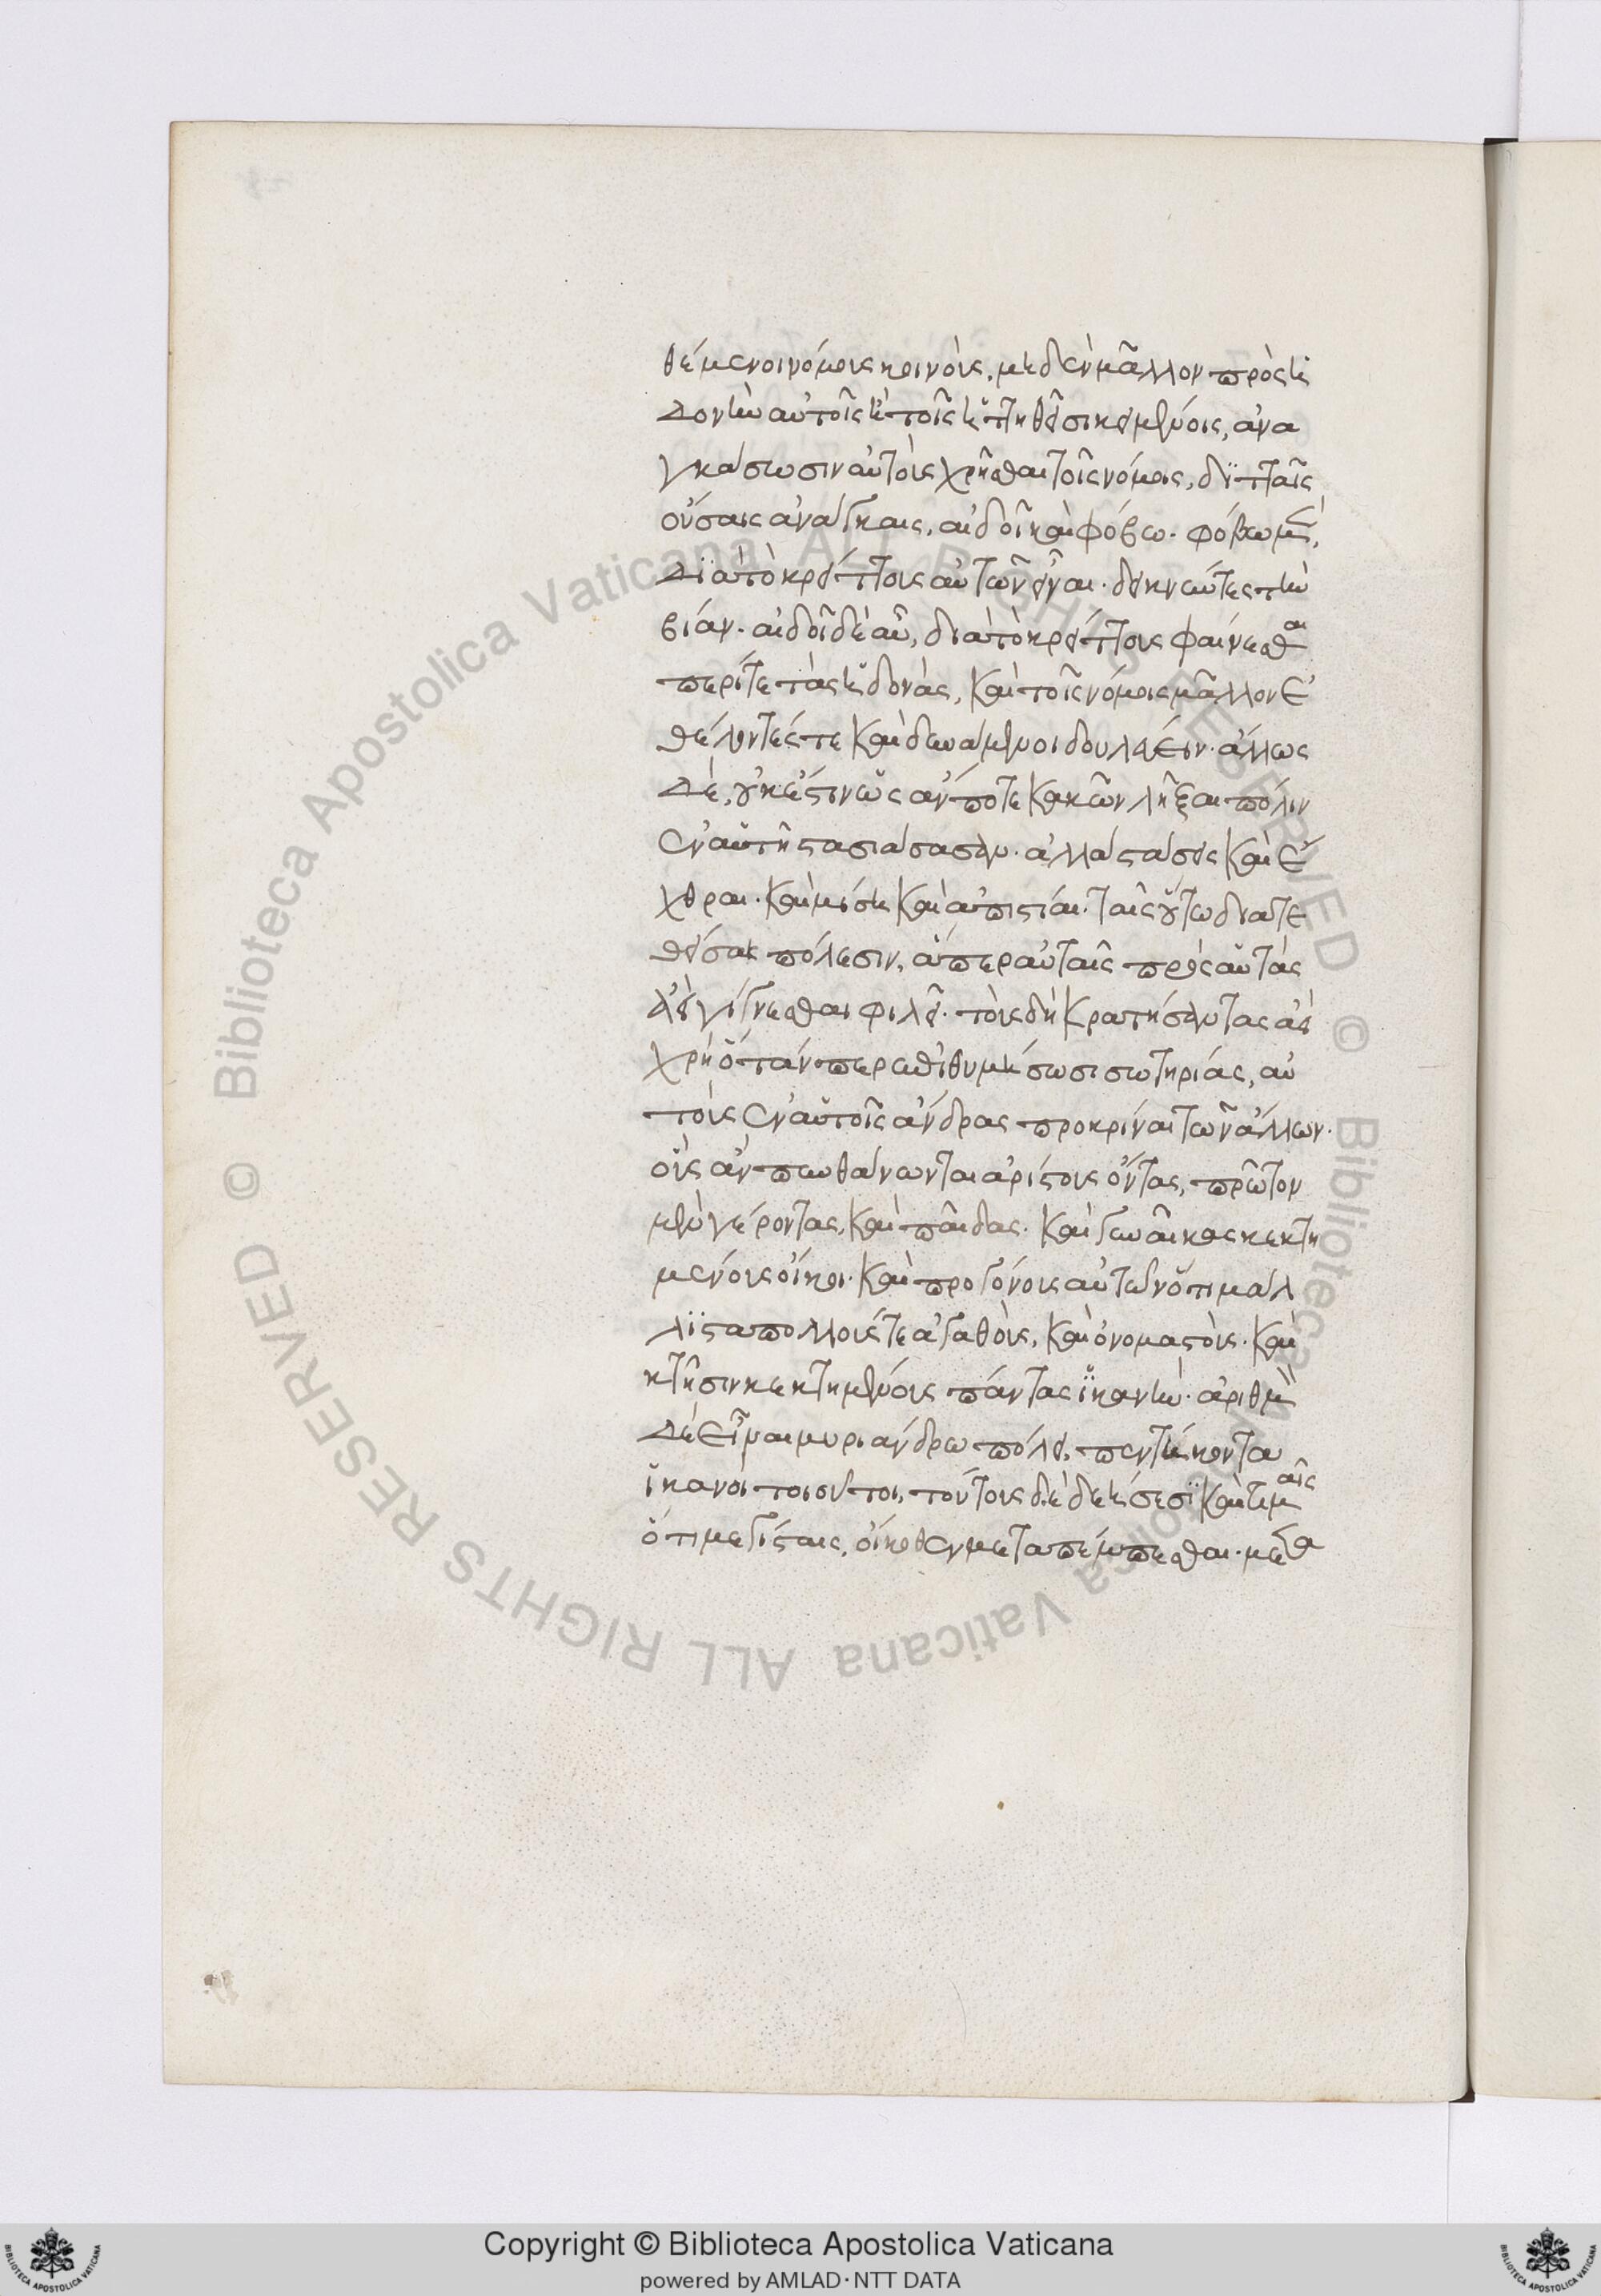 θέμενοι νόμους κοινοὺς, μηδὲν μᾶλλον πρὸς ἡ
δονὴν αὐτοῖς ἢ τοῖς ἡττηθεῖσι κειμένους, ἀνα
γκάσωσιν αὐτοὺς χρῆσθαι τοῖς νόμοις, διτταῖς
οὔσαις ἀνάγκαις, αἰδοῖ καὶ φόβω. φόβω μὲν,
διὰ τὸ κρείττους αὐτῶν εἶναι. δεικνύντες τὴν
βίαν. αἰδοῖ δὲ αὖ, διὰ τὸ κρείττους φαίνεσθαι
περί τε τὰς ἡδονὰς, καὶ τοῖς νόμοις μᾶλλον ἐ
θέλοντές τε καὶ δυνάμενοι δουλεύειν. ἄλλως
δὲ, οὐκ ἔστιν ὡς ἄν ποτε κακῶν λῆξαι πόλιν
ἐν αὑτῇ στασιάσασαν. ἀλλὰ στάσεις καὶ ἔ
χθραι. καὶ μίση καὶ ἀπιστίαι. ταῖς οὕτω διατε
θείσαις πόλεσιν, ἅπερ αὐταῖς πρὸς αὑτὰς
ἀεὶ γίγνεσθαι φιλεῖ. τοὺς δὴ κρατήσαντας ἀεὶ
χρὴ ὅτάν περ ἐπιθυμήσωσι σωτηρίας, αὐ
τοὺς ἐν αὑτοῖς ἄνδρας προκρῖναι τῶν ἄλλων.
οὓς ἂν πυνθάνωνται ἀρίστους ὄντας, πρῶτον
μὲν γέροντας, καὶ παῖδας. καὶ γυναῖκας κεκτη
μένους οἴκοι. καὶ προγόνους αὐτῶν ὅτι μάλ
λιστα πολλούς τε ἀγαθοὺς, καὶ ὀνομαστοὺς. καὶ
κτῆσιν κεκτημένους πάντας ἱκανὴν. ἀριθμῷ
δὲ εἶναι μυριάνδρω πόλει, πεντήκοντα
ἱκανοὶ τοιοῦτοι, τούτους δὲ δεήσεσι καὶ τιμαῖς
ὅτι μεγίσταις, οἴκοθεν μεταπέμπεσθαι. μετα
Copyright © Biblioteca Apostolica Vaticana
powered by AMLAD·NTT DATA